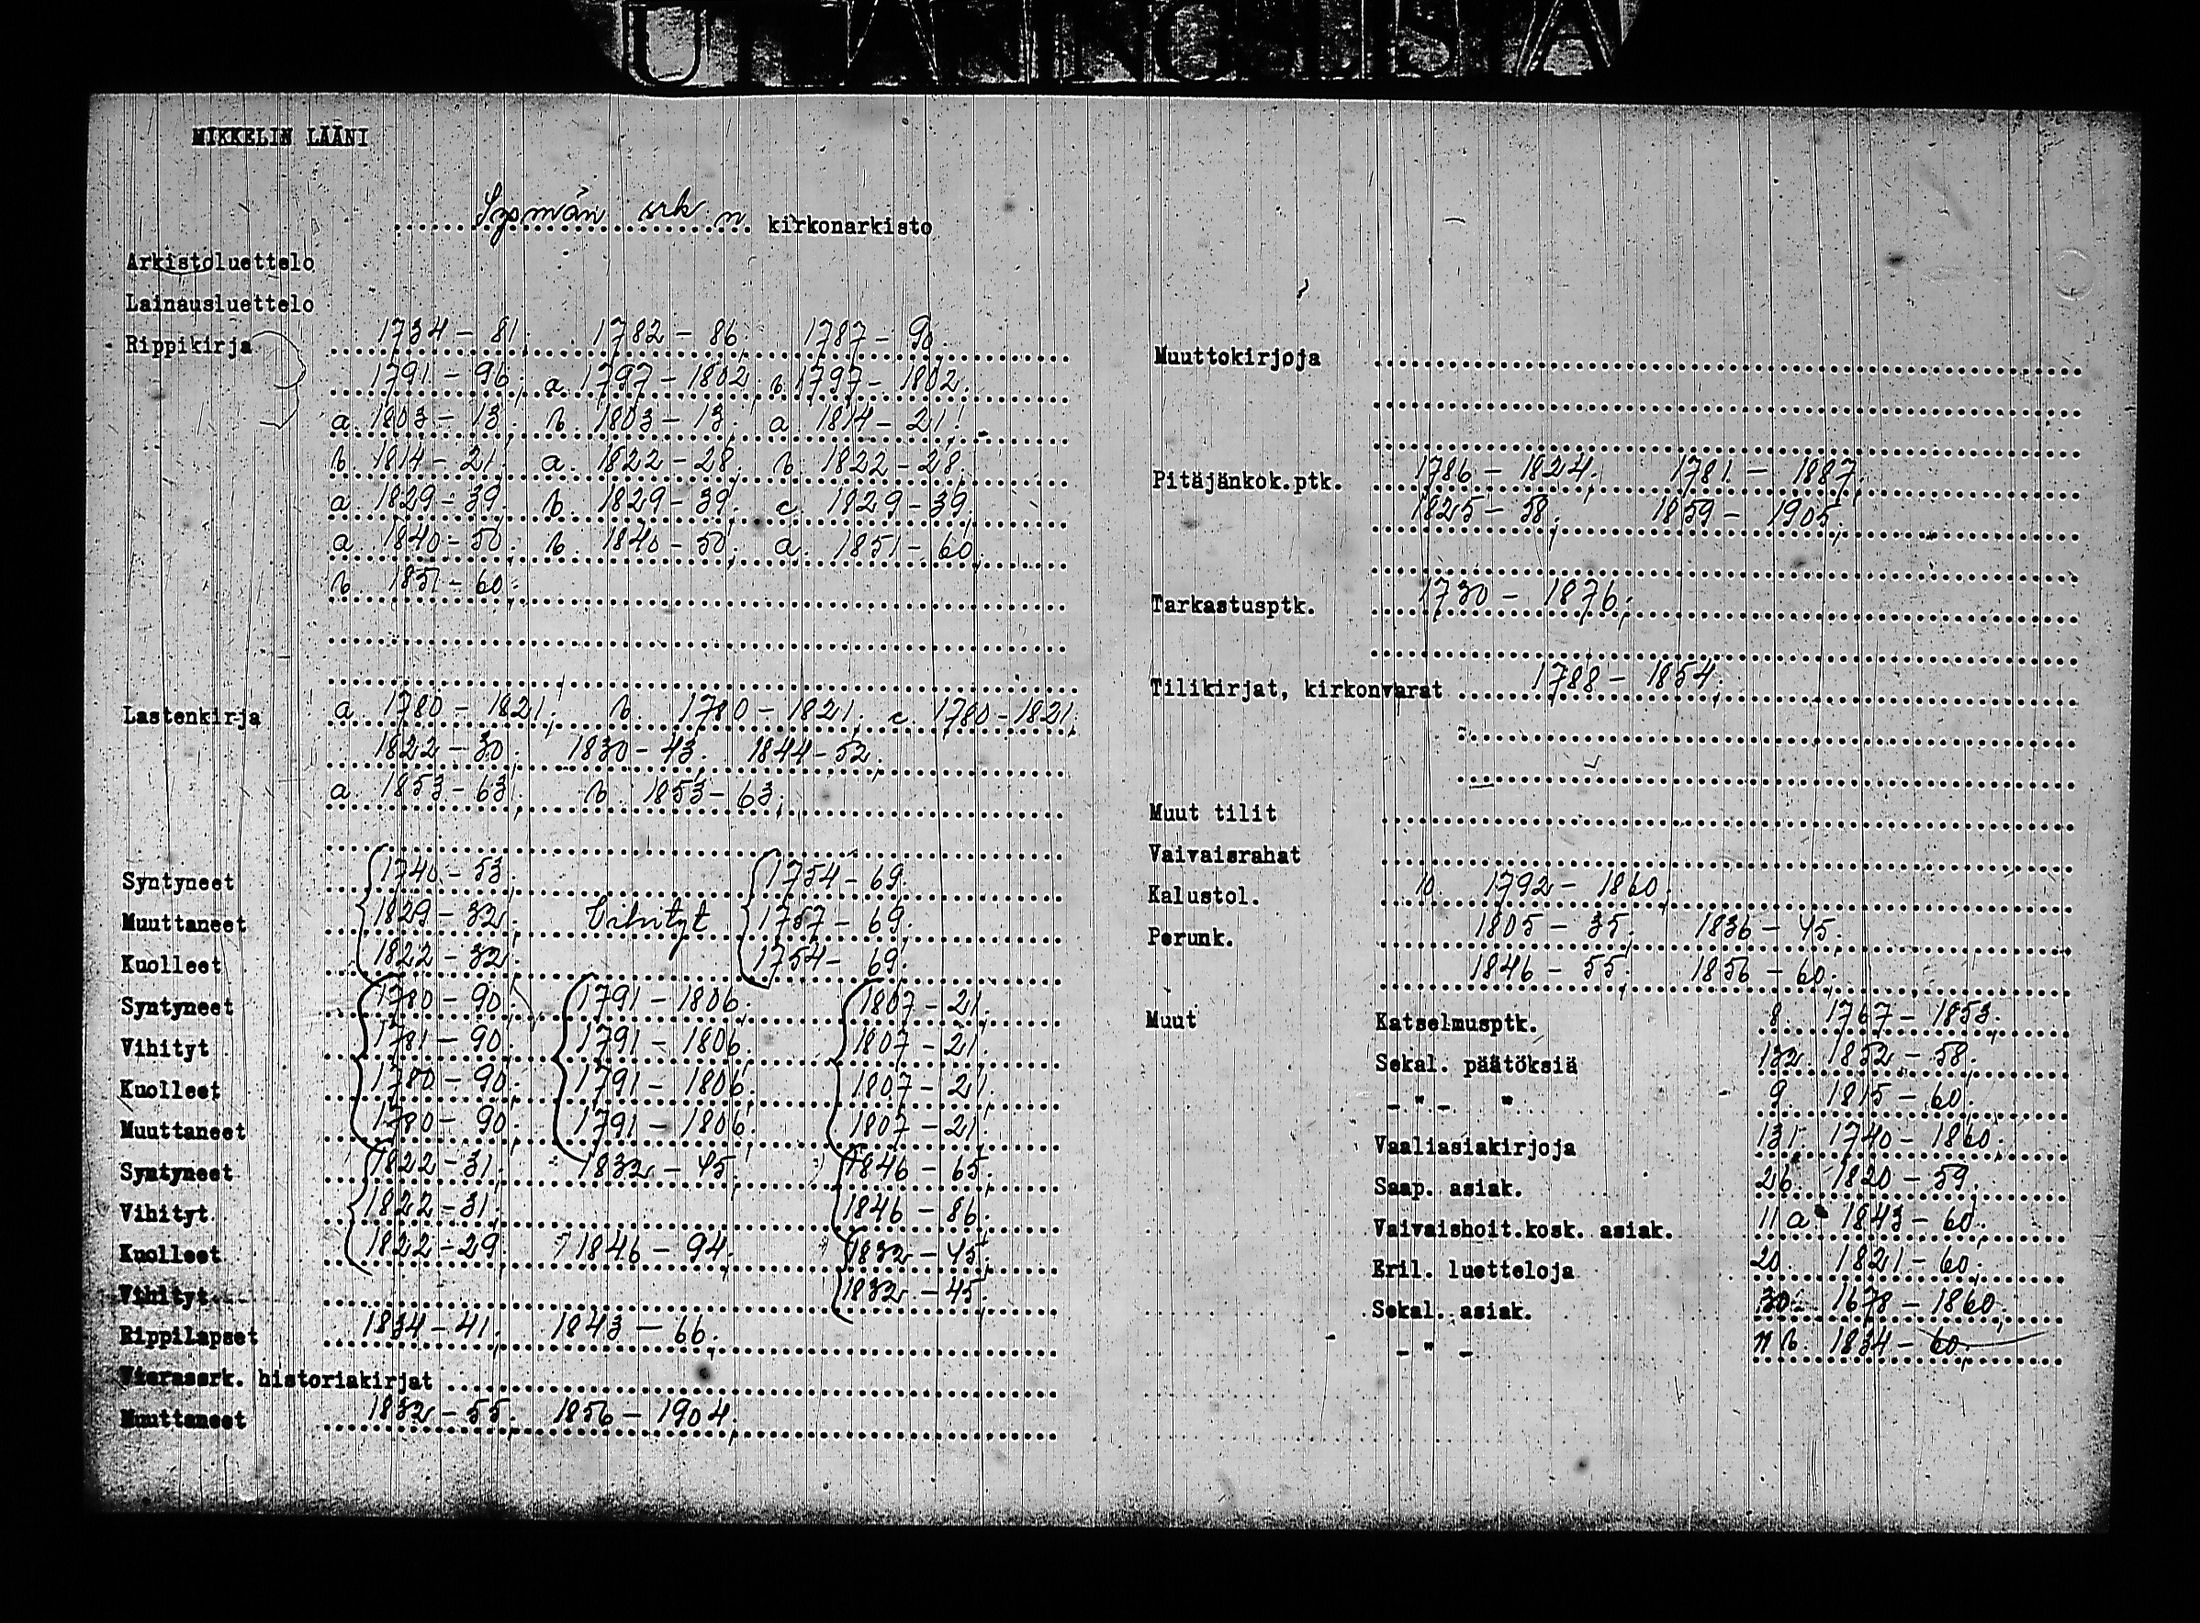 UTLÅNINGSLISTA
MIKKELIN LÄÄNI
Sysmän srk:n kirkonarkisto
Arkistoluettelo
Lainausluettelo
Rippikirja 1734 - 81; 1782 - 86; 1787 - 90;
1791 - 96; a. 1797 - 1802; b. 1797 - 1802;
a. 1803 - 13; b. 1803 - 13; a. 1814 - 21;
b. 1814 - 21; a. 1822 - 28; b. 1822 - 28;
a. 1829 - 39; b. 1829 - 39; c. 1829 - 39;
a. 1840 - 50; b. 1840 - 50; a. 1851 - 60;
b. 1851 - 60;
Lastenkirja a. 1780 - 1821; b. 1780 - 1821; c. 1780 - 1821;
1822 - 30; 1830 - 43; 1844 - 52;
a. 1853 - 63; b. 1853 - 63;
Syntyneet 1740 - 53; 1754 - 69;
Muuttaneet 1829 - 32; Vihityt 1757 - 69;
Kuolleet 1822 - 32; 1754 - 69;
Syntyneet 1780 - 90; 1791 - 1806; 1807 - 21;
Vihityt 1781 - 90; 1791 - 1806; 1807 - 21;
Kuolleet 1780 - 90; 1791 - 1806; 1807 - 21;
Muuttaneet 1780 - 90; 1791 - 1806; 1807 - 21;
Syntyneet 1822 - 31; 1832 - 45; 1846 - 65;
Vihityt 1822 - 31; 1846 - 86;
Kuolleet 1822 - 29; 1846 - 94; 1832 - 45;
Vihityt 1832 - 45;
Rippilapset 1834 - 41; 1843 - 66;
Vierassrk. historiakirjat
Muuttaneet 1832 - 55; 1856 - 1904;
Muuttokirjoja
Pitäjänkok.ptk. 1786 - 1824; 1781 - 1887;
1825 - 58; 1859 - 1905;
Tarkastusptk. 1730 - 1876;
Tilikirjat, kirkonvarat 1788 - 1854;
Muut tilit
Vaivaisrahat
Kalustol. 10. 1792 - 1860;
Perunk. 1805 - 35; 1836 - 45;
1846 - 55; 1856 - 60;
Muut Katselmusptk. 8. 1767 - 1853;
Sekal. päätöksiä 132. 1852 - 58;
- " - " 9 1815 - 60;
Vaaliasiakirjoja 131. 1740 - 1860;
Saap. asiak. 26. 1820 - 59;
Vaivaishoit.kosk. asiak. 11 a. 1843 - 60;
Eril. luetteloja 20. 1821 - 60;
Sekal. asiak. 30. 1678 - 1860;
- " - 11 b. 1834 - 60;